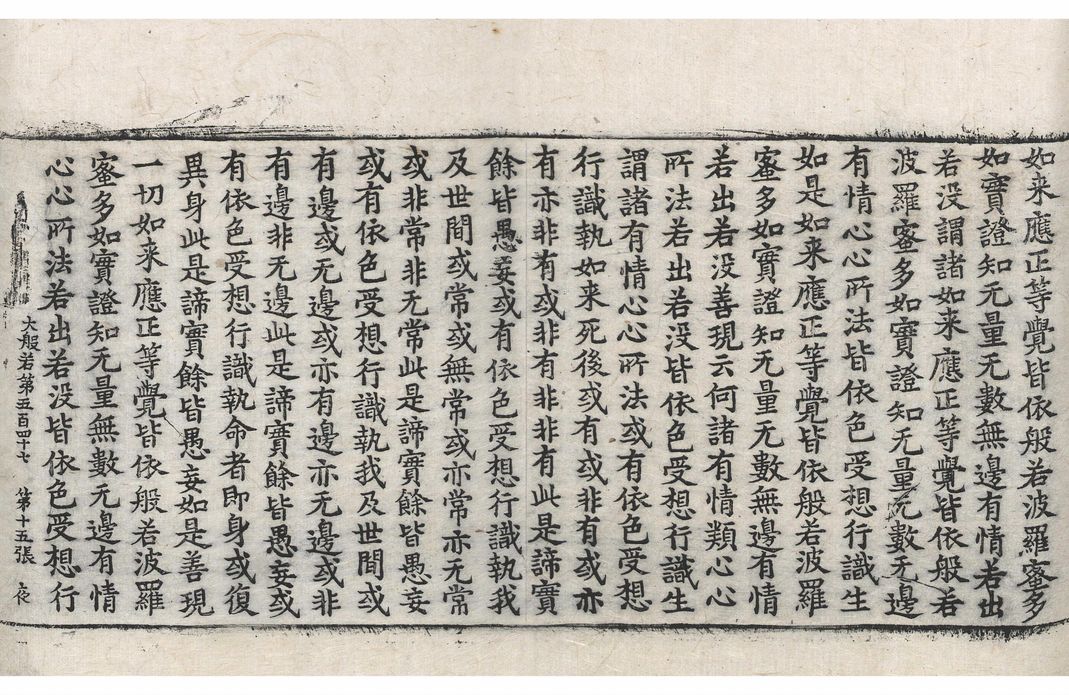 如来應正等覺皆依般若波羅蜜多
如實證知无量无數無邊有情若出
若没謂諸如来應正等覺皆依般若
波羅蜜多如實證知无量无數无邊
有情心心所法皆依色受想行識生
如是如来應正等覺皆依般若波羅
蜜多如實證知无量无數無邊有情
若出若没善現云何諸有情類心心
所法若出若没皆依色受想行識生
謂諸有情心心所法或有依色受想
行識執如来死後或有或非有或亦
有亦非有或非有非非有此是諦實
餘皆愚妄或有依色受想行識執我
及世間或常或無常或亦常亦无常
或非常非无常此是諦實餘皆愚妄
或有依色受想行識執我及世間或
有邊或无邊或亦有邊亦无邊或非
有邊非无邊此是諦實餘皆愚妄或
有依色受想行識執命者即身或復
異身此是諦實餘皆愚妄如是善現
一切如来應正等覺皆依般若波羅
蜜多如實證知无量無數无邊有情
心心所法若出若没皆依色受想行
大般若第五百四十七 第十五張 夜